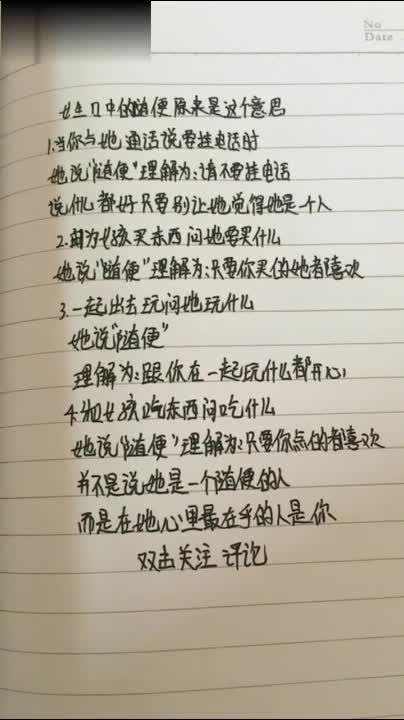 No
Date
女生口中的随便原来是这个意思
1.当你与她通话说要挂电话时
她说"随便"理解为:请不要挂电话
说什么都好只要别让她觉得她是一个人
2.因为女孩买东西问她要买什么
她说"随便"理解为:只要你买的她都喜欢
3.一起出去玩问她玩什么
她说"随便"
理解为:跟你在一起玩什么都开心
4.如女孩吃东西问吃什么
她说"随便"理解为:只要你点的都喜欢
并不是说她是一个随便的人
而是在她心里最在乎的人是你
双击关注 评论